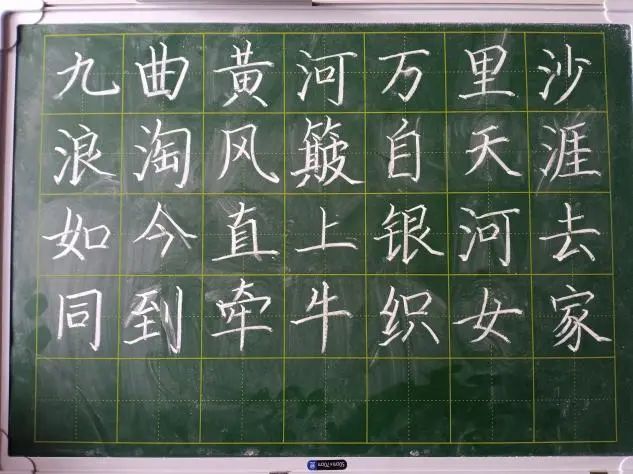 九曲黄河万里沙
浪淘风簸自天涯
如今直上银河去
同到牵牛织女家
50cm×70cm